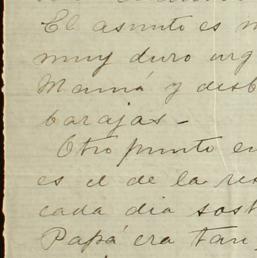 El asunto es
muy duro urg
Mamá y desb
barajas -
Otro punto en
es el de la res
cada dia sost
Papá era tan